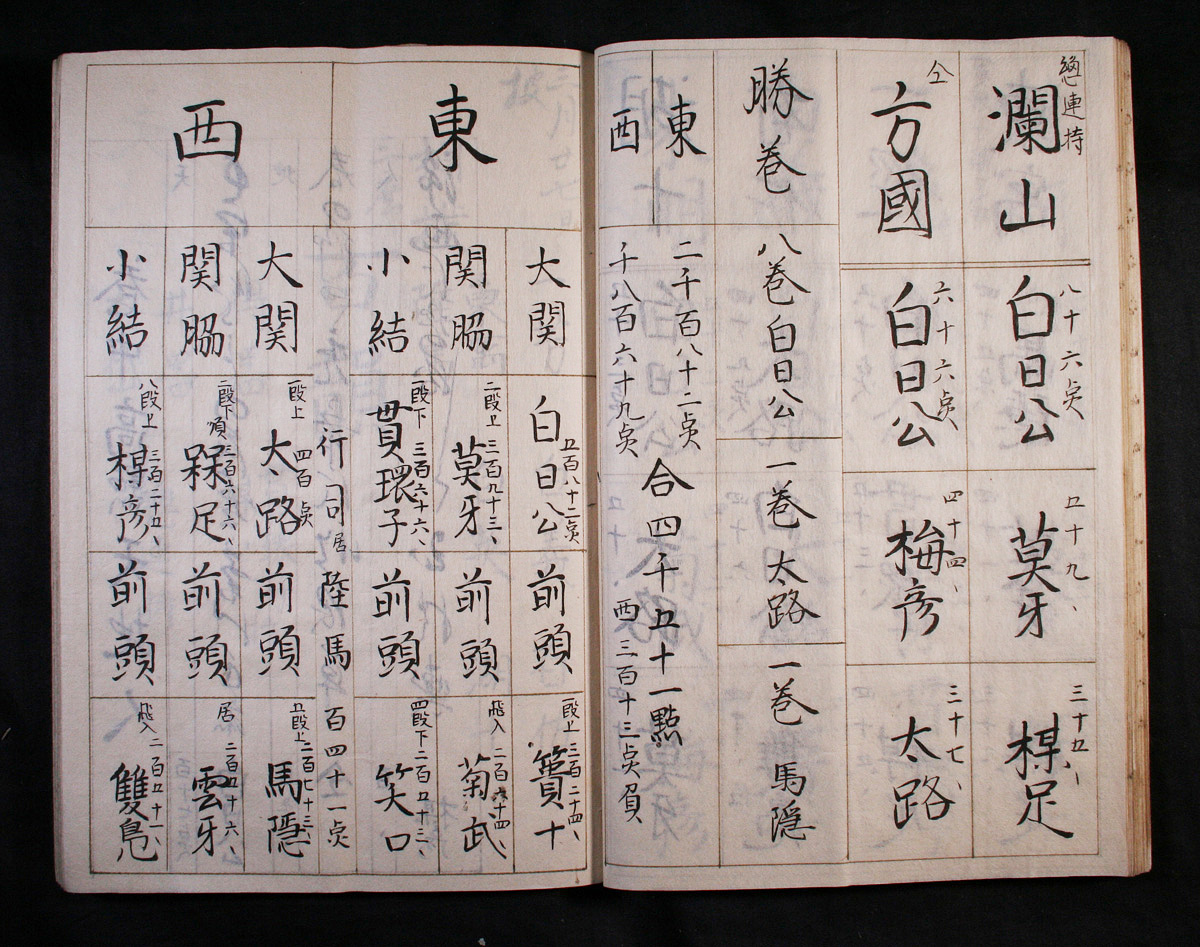 總連持
瀾山
八十六点
白日公
五十九、
莫牙
三十五、
足
仝
方國
六十六点
白日公
四十四、
梅彦
三十七、
太路
勝巻
八巻 白日公
一巻 太路
一巻 馬隠
東
二千百八十二点
西
千八百六十九点
合四千五十一點
西三百十三点負
東
大関
五百八十二点
白日公
前頭
二百二十四、
十
関脇
二段上 三百九十三、
莫牙
前頭
飛入 二百六十四、
菊武
小結
一段下 三百六十六、
貫環子
前頭
四段下 二百五十三、
笑口
行司
居
陸馬
百四十一点
西
大関
一段上 四百点
太路
前頭
五段上 二百七十三、
馬隠
関脇
二段下 順 三百六十六、
足
前頭
居 二百五十六、
雲牙
小結
八段上 三百二十五、
彦
前頭
飛入 二百五十一、
雙鳬